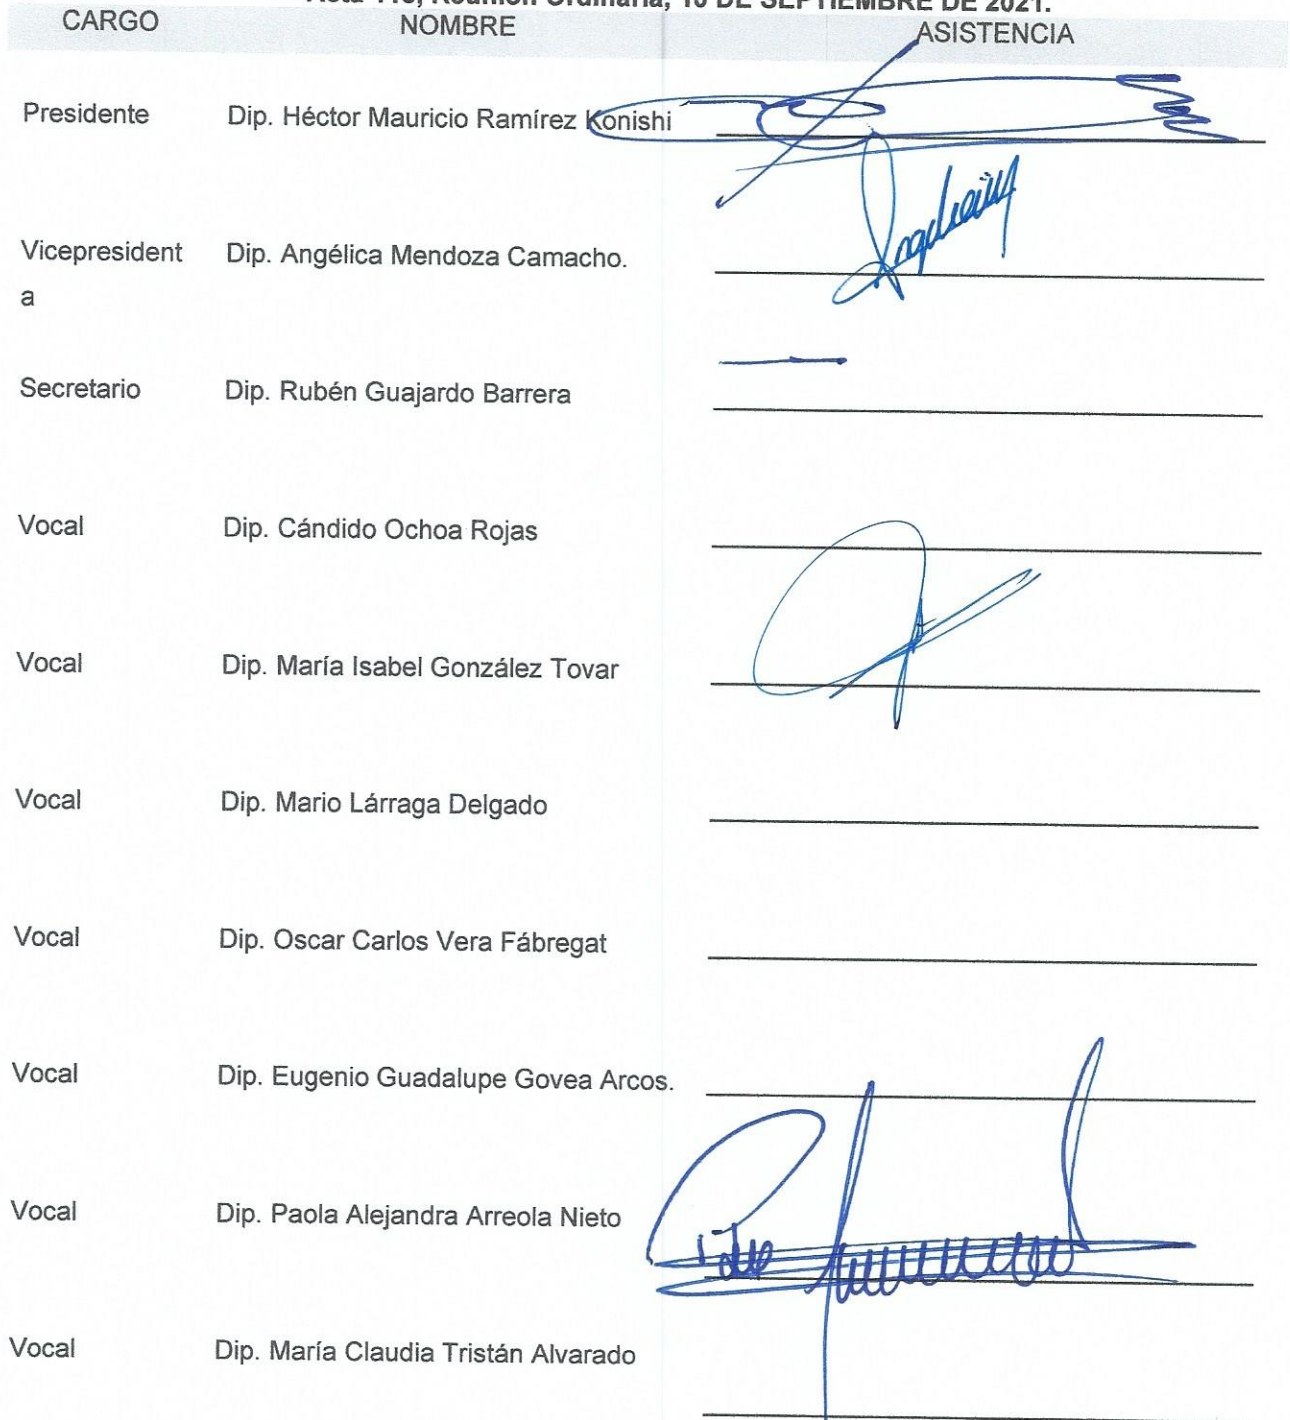 Reunión Ordinaria, DE SEPTIEMBRE DE 2021.
CARGO NOMBRE ASISTENCIA
Presidente Dip. Héctor Mauricio Ramírez Konishi
Vicepresident Dip. Angélica Mendoza Camacho.
a
Secretario Dip. Rubén Guajardo Barrera
Vocal Dip. Cándido Ochoa Rojas
Vocal Dip. María Isabel González Tovar
Vocal Dip. Mario Lárraga Delgado
Vocal Dip. Oscar Carlos Vera Fábregat
Vocal Dip. Eugenio Guadalupe Govea Arcos.
Vocal Dip. Paola Alejandra Arreola Nieto
Vocal Dip. María Claudia Tristán Alvarado